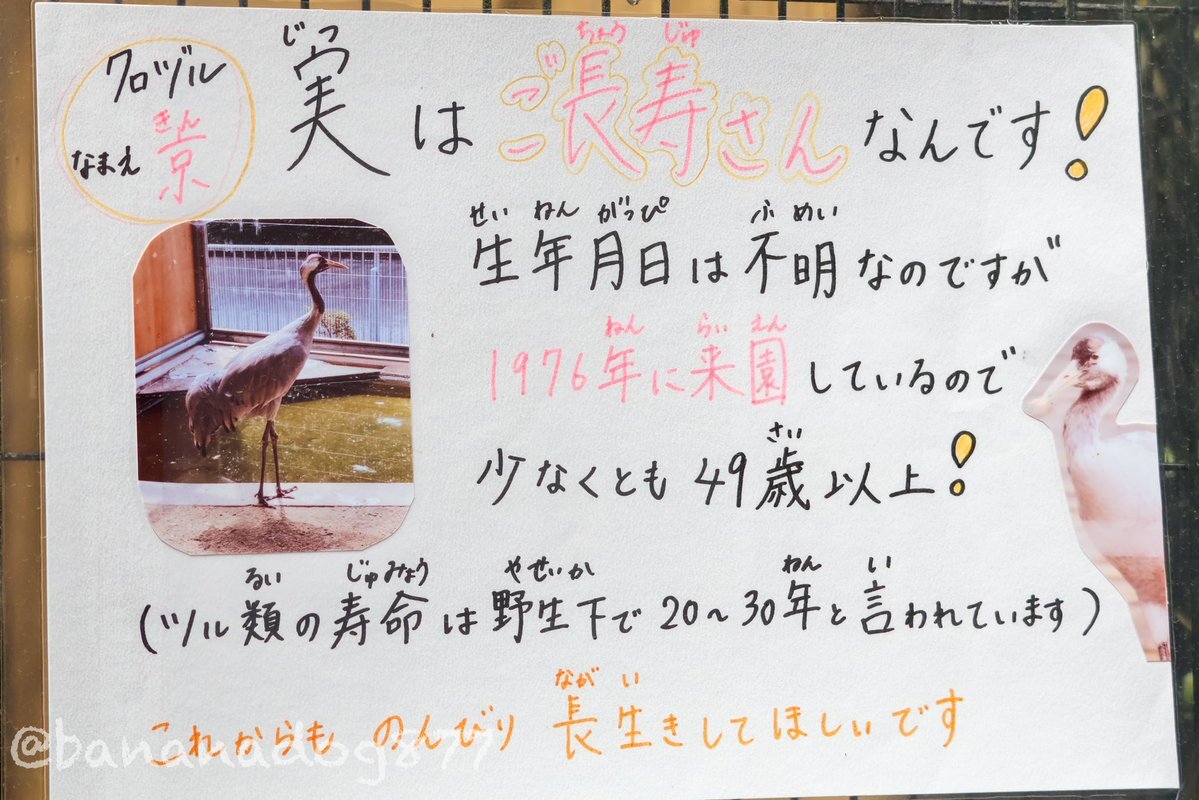 クロヅル
なまえ
きん
京
じつ ちょう じゅ
実はご長寿さんなんです!
せい ねん がっぴ ふ めい
生年月日は不明なのですが
ねん らい えん
1976年に来園しているので
さい
少なくとも49歳以上!
るい じゅみょう やせいか ねん い
(ツル類の寿命は野生下で20~30年と言われています)
なが い
これからものんびり長生きしてほしいです
@bananadog877